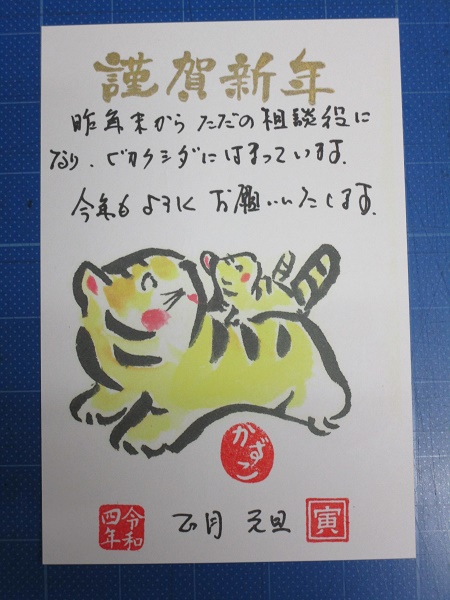 謹賀新年
昨年末からただの相談役に
なり、ビカクシダにはまっています。
今年もよろしくお願いいたします。
かずこ
令和四年
正月 元旦
寅